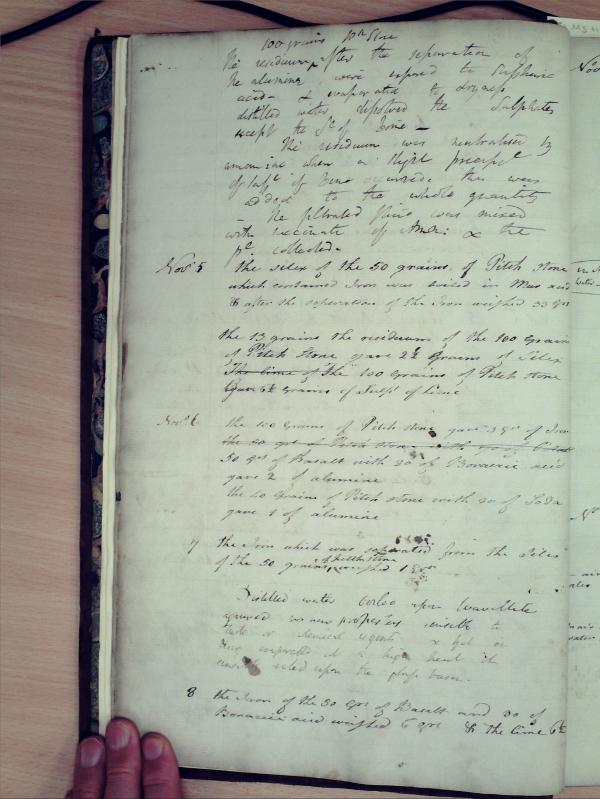 100 grains Ph Stone
The residuum after the separation of
the alumine were exposed to Sulphuric
acid & evaporated to dryness
distilled water dissolved the Sulphates
except the St of lime —
The residuum was neutralised by
ammoniac when a slight precipte
of Sulpt of lime occurred. this was
added to the whole quantity
— The filtrated fluid was mixed
with succinate of Amm: & the
pt. collected.
Novr 5 the silex of the 50 grains of Pitch stone
which contained Iron was boiled in Mur acid
& after the separation of the Iron weighed 33 grs
the 13 grains the residuum of the 100 grains
of Pitch Stone gave 2½ Grains of Silex
The lime of the 100 grains of Pitch stone
Gave 6½ Grains of Sulpt of lime
Novr 6 the 100 Grains of Pitch stone gave 3 grs of Iron
the 50 grs of Pitch stone with
50 grs of Basalt with 30 of Boracic acid
gave 2 of alumine
the 40 Grains of Pitch stone with 20 of Soda
gave 1 of alumine
7 the Iron which was separated from the Silex
of the 50 grains of Pitch stone weighed 1 gr
Distilled water boiled upon Wavellite
acquired no new properties sensible to
taste or chemical agents &
being evaporated at a high heat it
upon the glass bason.
8 the Iron of the 50 grs of Basalt and 30 of
Boracic acid weighed 6 grs & the lime 6½